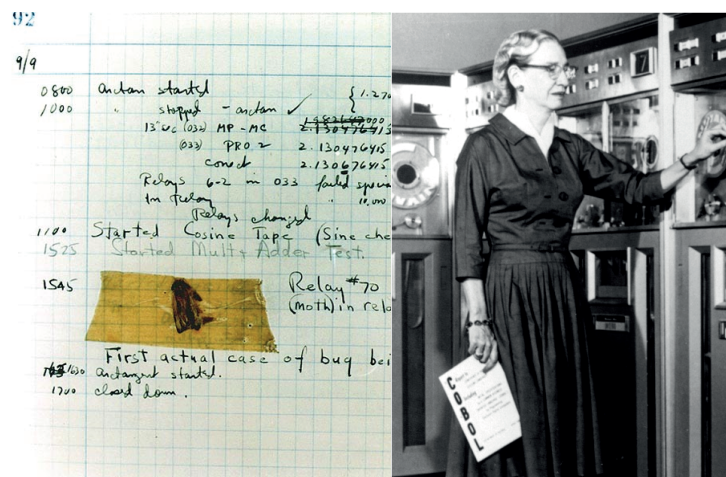 92
9/9
0800 Antan started { 1.270
1000 " stopped - antan ✓
13"uc (032) MP - MC 2.130476415
(033) PRO 2 2.130476415
conect 2.130676415
Relays 6-2 in 033 failed
In Relay " 10.000
Relays changed
1100 Started Cosine Tape (Sine che
1525 Started Mult + Adder Test.
1545 Relay #70
(moth) in rela
First actual case of bug bei
1630 antangent started.
1700 closed down.
COBOL